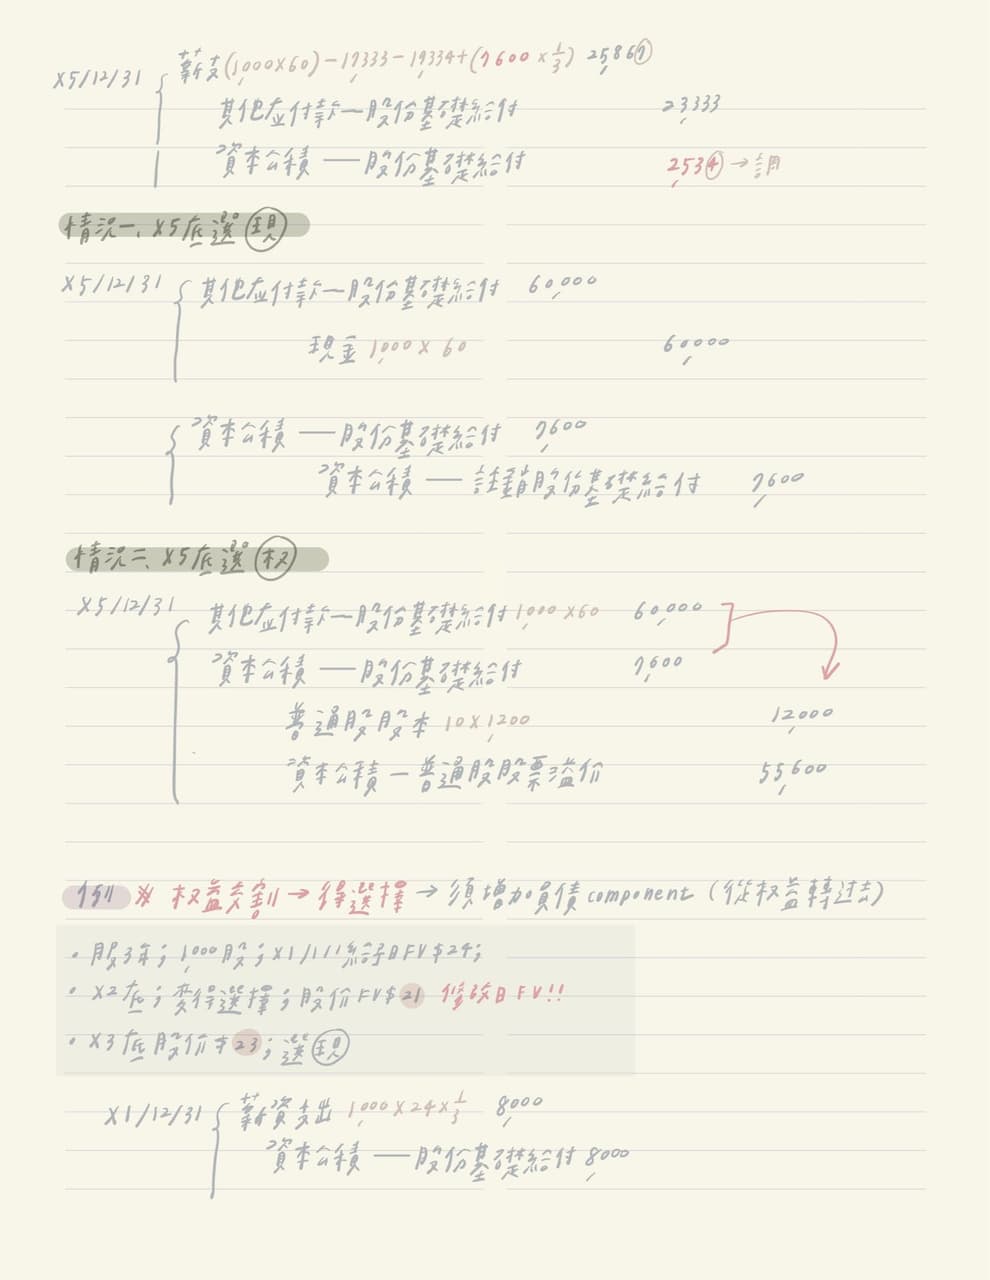 X5/12/31 薪支(1,000×60)-17,333-19,334+(7600×1/3) 25,867
其他应付款—股份基礎給付 23,333
資本公積—股份基礎給付 2,534→調
情況一、X5底選現
X5/12/31 其他应付款—股份基礎給付 60,000
現金 1,000×60 60,000
資本公積—股份基礎給付 7,600
資本公積—註銷股份基礎給付 7,600
情況二、X5底選权
X5/12/31 其他应付款—股份基礎給付 1,000×60 60,000
資本公積—股份基礎給付 7,600
普通股股本 10×1,200 12,000
資本公積—普通股股票溢价 55,600
例 ※ 权益交割→得選擇→須增加負債component(從权益轉过去)
• 服3年;1,000股;X1/1/1給予日FV$24;
• X2底;変得選擇;股价FV$21 修改日FV!!
• X3底股价$23;選現
X1/12/31 薪資支出 1,000×24×1/3 8,000
資本公積—股份基礎給付 8,000